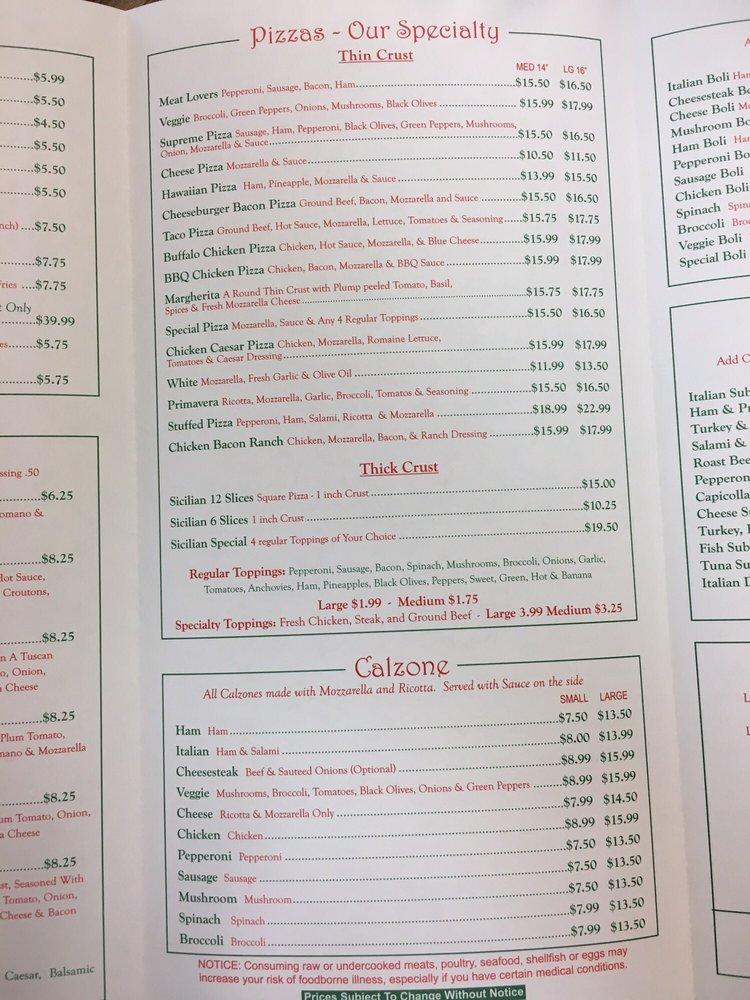 ...$5.99
...$5.50
...$4.50
...$5.50
...$5.50
...$5.50
...$7.50
...$7.75
...$7.75
Only
...$39.99
...$5.75
...$5.75
.50
...$6.25
omano &
...$8.25
Hot Sauce,
Croutons,
...$8.25
n A Tuscan
o, Onion,
Cheese
...$8.25
Plum Tomato,
mano & Mozzarella
...$8.25
um Tomato, Onion,
a Cheese
...$8.25
st, Seasoned With
Tomato, Onion,
Cheese & Bacon
Caesar, Balsamic
Pizzas - Our Specialty
Thin Crust
MED 14" LG 16"
Meat Lovers Pepperoni, Sausage, Bacon, Ham...$15.50 $16.50
Veggie Broccoli, Green Peppers, Onions, Mushrooms, Black Olives...$15.99 $17.99
Supreme Pizza Sausage, Ham, Pepperoni, Black Olives, Green Peppers, Mushrooms,
Onion, Mozzarella & Sauce...$15.50 $16.50
Cheese Pizza Mozzarella & Sauce...$10.50 $11.50
Hawaiian Pizza Ham, Pineapple, Mozzarella & Sauce...$13.99 $15.50
Cheeseburger Bacon Pizza Ground Beef, Bacon, Mozzarella and Sauce...$15.50 $16.50
Taco Pizza Ground Beef, Hot Sauce, Mozzarella, Lettuce, Tomatoes & Seasoning...$15.75 $17.75
Buffalo Chicken Pizza Chicken, Hot Sauce, Mozzarella, & Blue Cheese...$15.99 $17.99
BBQ Chicken Pizza Chicken, Bacon, Mozzarella & BBQ Sauce...$15.99 $17.99
Margherita A Round Thin Crust with Plump peeled Tomato, Basil,
Spices & Fresh Mozzarella Cheese...$15.75 $17.75
Special Pizza Mozzarella, Sauce & Any 4 Regular Toppings...$15.50 $16.50
Chicken Caesar Pizza Chicken, Mozzarella, Romaine Lettuce,
Tomatoes & Caesar Dressing...$15.99 $17.99
White Mozzarella, Fresh Garlic & Olive Oil...$11.99 $13.50
Primavera Ricotta, Mozzarella, Garlic, Broccoli, Tomatos & Seasoning...$15.50 $16.50
Stuffed Pizza Pepperoni, Ham, Salami, Ricotta & Mozzarella...$18.99 $22.99
Chicken Bacon Ranch Chicken, Mozzarella, Bacon, & Ranch Dressing...$15.99 $17.99
Thick Crust
Sicilian 12 Slices Square Pizza - 1 inch Crust...$15.00
Sicilian 6 Slices 1 inch Crust...$10.25
Sicilian Special 4 regular Toppings of Your Choice...$19.50
Regular Toppings: Pepperoni, Sausage, Bacon, Spinach, Mushrooms, Broccoli, Onions, Garlic,
Tomatoes, Anchovies, Ham, Pineapples, Black Olives, Peppers, Sweet, Green, Hot & Banana
Large $1.99 - Medium $1.75
Specialty Toppings: Fresh Chicken, Steak, and Ground Beef - Large 3.99 Medium $3.25
Calzone
All Calzones made with Mozzarella and Ricotta. Served with Sauce on the side
SMALL LARGE
Ham Ham...$7.50 $13.50
Italian Ham & Salami...$8.00 $13.99
Cheesesteak Beef & Sauteed Onions (Optional)...$8.99 $15.99
Veggie Mushrooms, Broccoli, Tomatoes, Black Olives, Onions & Green Peppers...$8.99 $15.99
Cheese Ricotta & Mozzarella Only...$7.99 $14.50
Chicken Chicken...$8.99 $15.99
Pepperoni Pepperoni...$7.50 $13.50
Sausage Sausage...$7.50 $13.50
Mushroom Mushroom...$7.50 $13.50
Spinach Spinach...$7.99 $13.50
Broccoli Broccoli...$7.99 $13.50
NOTICE: Consuming raw or undercooked meats, poultry, seafood, shellfish or eggs may
increase your risk of foodborne illness, especially if you have certain medical conditions.
Prices Subject To Change Without Notice
Italian Boli Ham
Cheesesteak Bo
Cheese Boli
Mushroom Bo
Ham Boli Ham
Pepperoni Bo
Sausage Boli
Chicken Boli
Spinach
Broccoli
Veggie Boli
Special Boli
Add C
Italian Sub
Ham & Pr
Turkey &
Salami &
Roast Bee
Pepperon
Capicolla
Cheese S
Turkey,
Fish Sub
Tuna Su
Italian